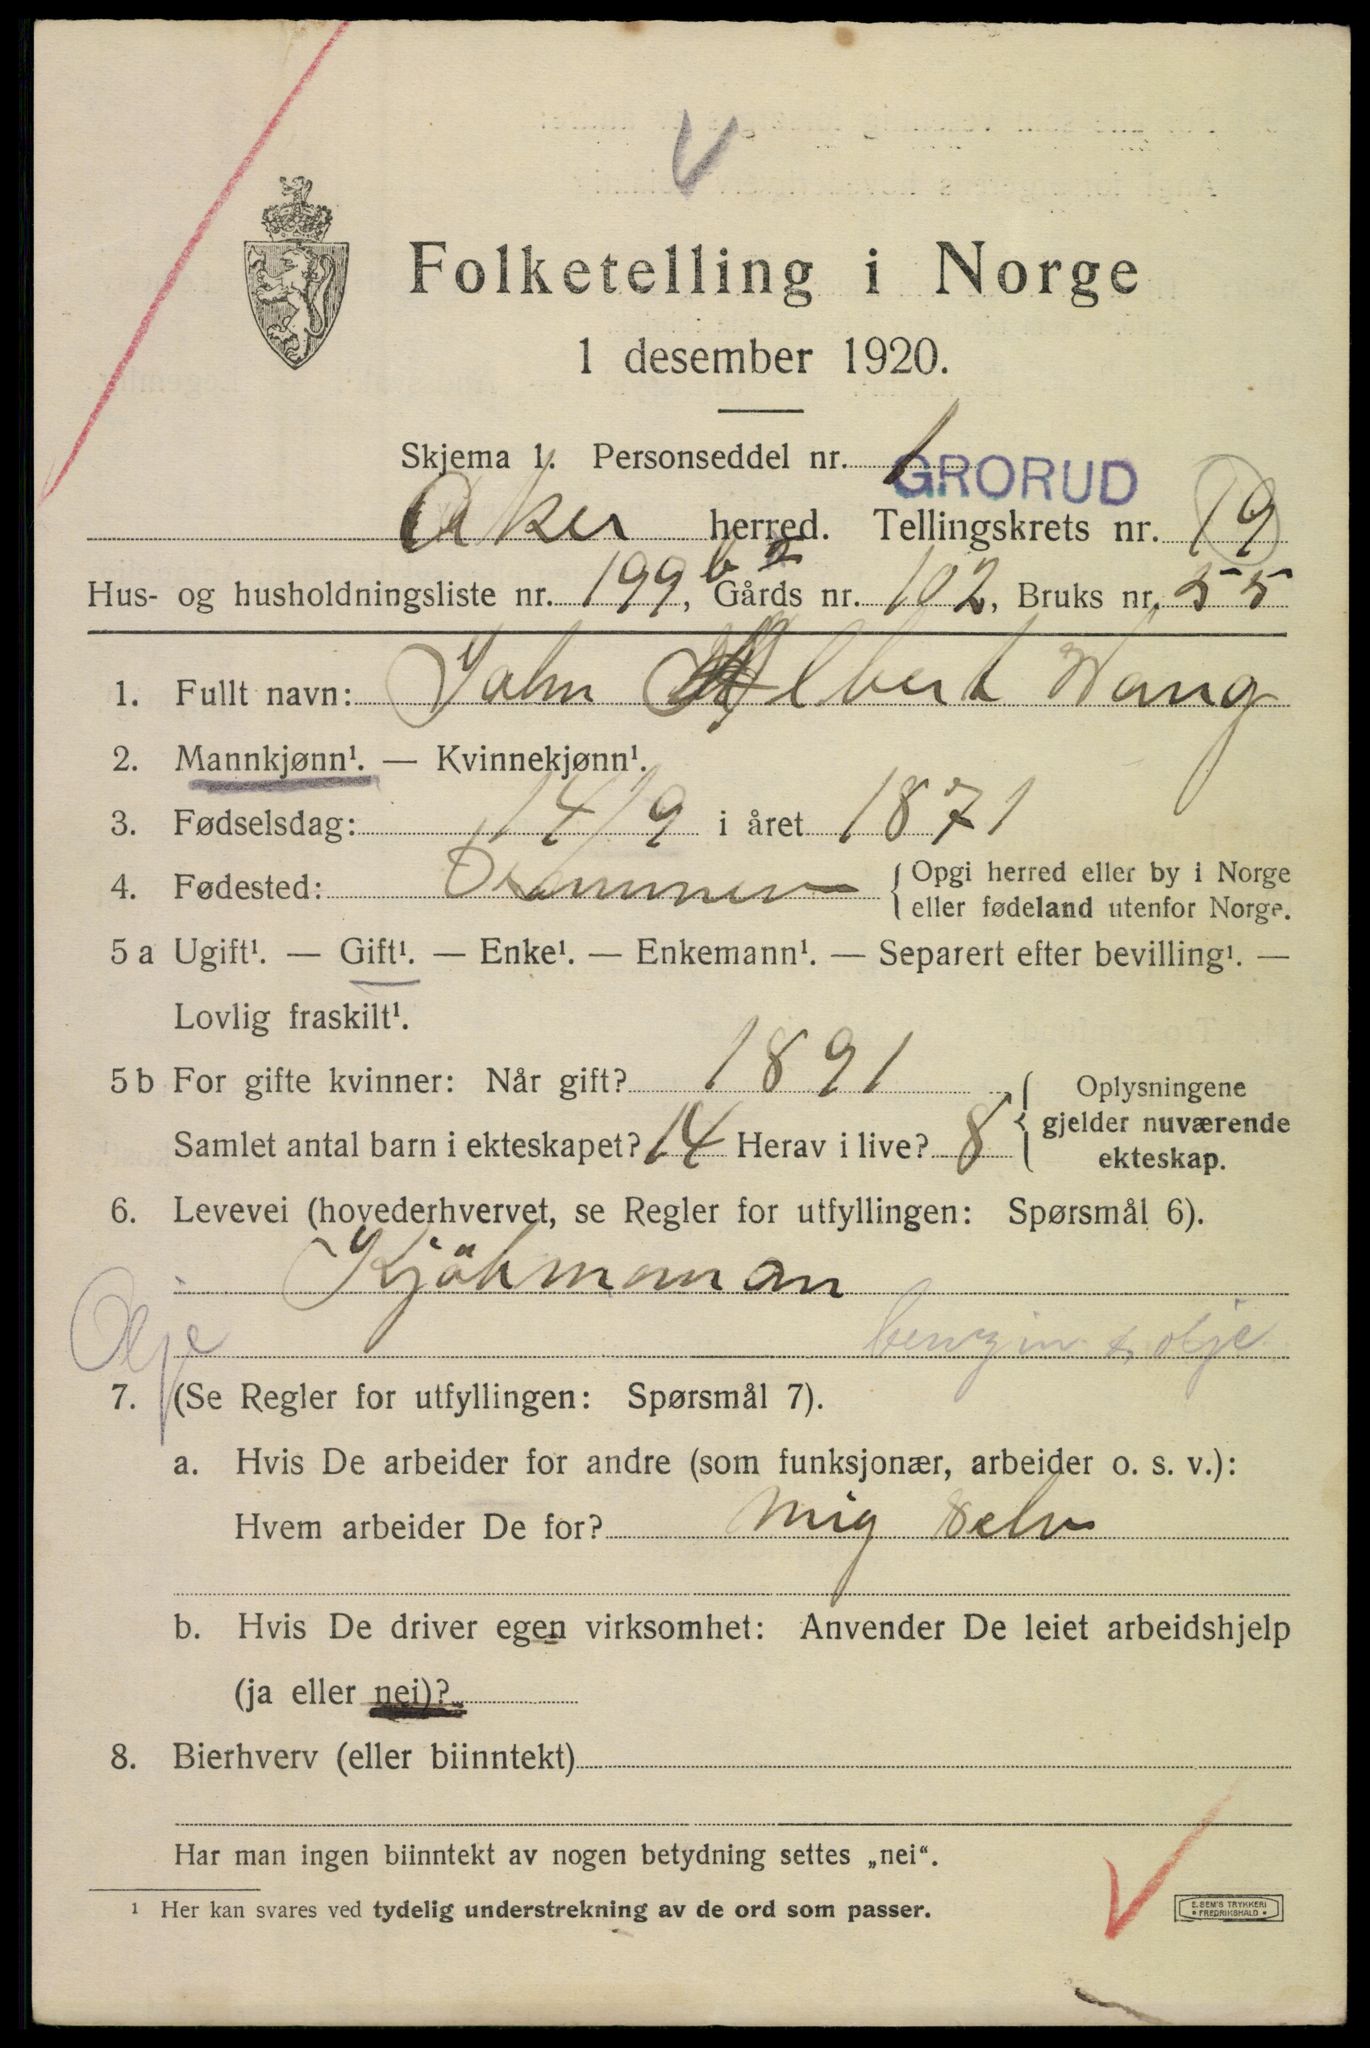 Folketelling i Norge
1 desember 1920.
Skjema 1. Personseddel nr. 1
GRORUD
Aker herred. Tellingskrets nr. 19
Hus- og husholdningsliste nr. 199 b, Gårds nr. 102, Bruks nr. 55
1. Fullt navn: John Albert Wang
2. Mannkjønn¹. — Kvinnekjønn¹.
3. Fødselsdag: 14/9 i året 1871
4. Fødested: Drammen { Opgi herred eller by i Norge
eller fødeland utenfor Norge.
5 a Ugift¹. — Gift¹. — Enke¹. — Enkemann¹. — Separert efter bevilling¹. —
Lovlig fraskilt¹.
5 b For gifte kvinner: Når gift? 1891
Samlet antal barn i ekteskapet? 14 Herav i live? 8
{ Oplysningene
gjelder nuværende
ekteskap.
6. Levevei (hovederhvervet, se Regler for utfyllingen: Spørsmål 6).
Kjöbmanan
Olje benzin & olje
7. (Se Regler for utfyllingen: Spørsmål 7).
a. Hvis De arbeider for andre (som funksjonær, arbeider o. s. v.):
Hvem arbeider De for? Mig selv
b. Hvis De driver egen virksomhet: Anvender De leiet arbeidshjelp
(ja eller nei)?
8. Bierhverv (eller biinntekt)
Har man ingen biinntekt av nogen betydning settes „nei“.
¹ Her kan svares ved tydelig understrekning av de ord som passer.
E. SEM'S TRYKKERI
• FREDRIKSHALD •